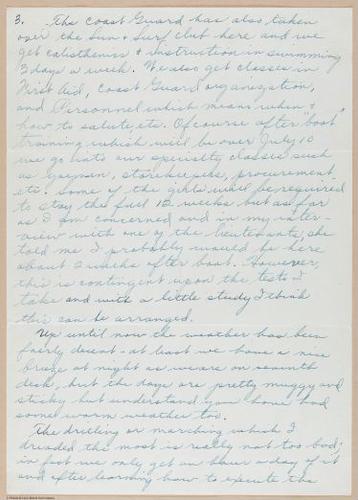 3. The Coast Guard has also taken
over the Sun & Surf club here and we
get calisthenics & instruction in swimming
3 days a week. We also get classes in
First Aid, Coast Guard organization,
and Personnel which means when &
how to salute, etc. Of course after "boot"
training which will be over July 10
we go into our specialty classes such
as yeoman, storekeepers, procurement
etc. Some of the girls will be required
to stay the full 12 weeks but as far
as I am concerned and in my inter-
view with one of the lieutenants, she
told me I probably would be here
about 2 weeks after boot. However,
this is contingent upon the tests I
take and with a little study I think
this can be arranged.
Up until now the weather has been
fairly decent - at least we have a nice
breeze at night as we are on seventh
deck, but the days are pretty muggy and
sticky but understand you have had
some warm weather too.
The drilling or marching which I
dreaded the most is really not too bad;
in fact we only get an hour a day of it
and after learning how to execute the